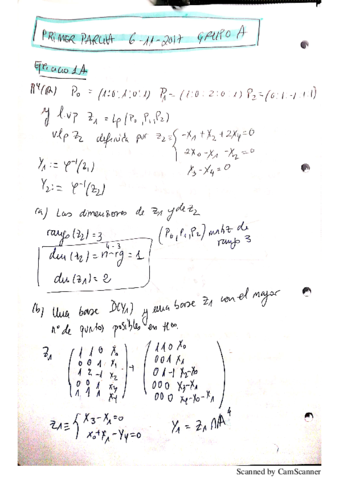 PRIMER PARCIAL 6-11-2017 GRUPO A
Ejercicio 1A
P0 = (1:0:1:0:1) P1 = (1:0:2:0:1) P2 = (0:1:-1:1:1)
y l.vp Z1 = Lp(P0, P1, P2)
vlp Z2 definida por Z2 = { -x1 + x2 + 2x4 = 0
2x0 - x1 - x2 = 0
x3 - x4 = 0
Y1 := φ⁻¹(Z1)
Y2 := φ⁻¹(Z2)
(a) Las dimensiones de Z1 y de Z2
rango(Z2) = 3
(P0, P1, P2) matriz de rango 3
dim(Z2) = n - rg = 1
4 - 3
dim(Z1) = 2
(b) Una base D(Y1) y una base Z1 con el mayor
nº de puntos posibles en
Z1
1 1 0 x0
0 0 1 x1
1 2 -1 x2
0 0 1
1 1 1 x4
1 1 0 x0
0 0 1 x1
0 1 -1 x2-x0
0 0 0 x3-x1
0 0 0 x4-x0-x1
Z1 ≡ { x3 - x1 = 0
x0 + x1 - x4 = 0
Y1 = Z1 ∩ A⁴
Scanned by CamScanner